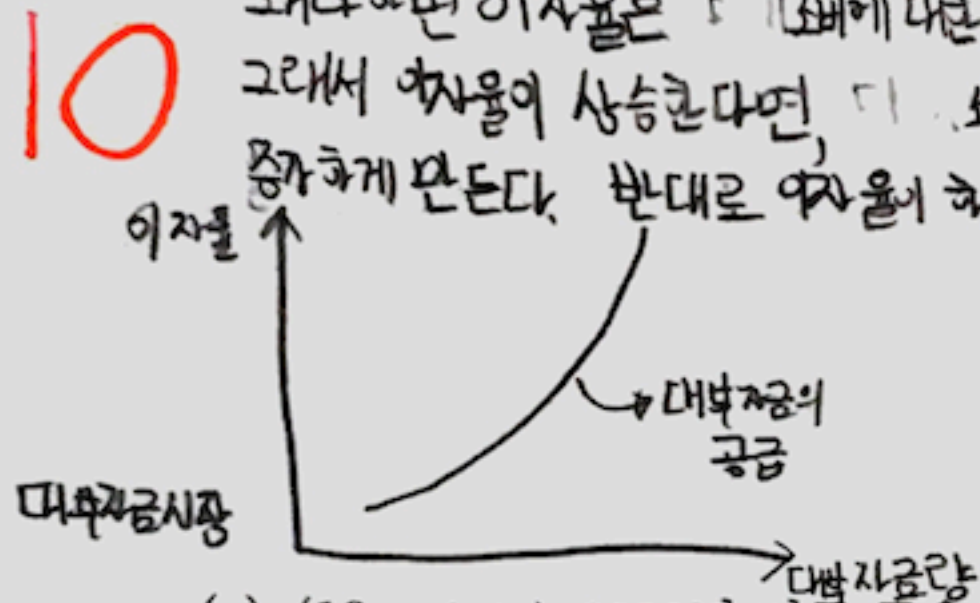 10
이자율은
그래서 이자율이 상승한다면,
증가하게 만든다. 반대로 이자율이
이자율
대부자금의
공급
대부자금시장
대부자금량